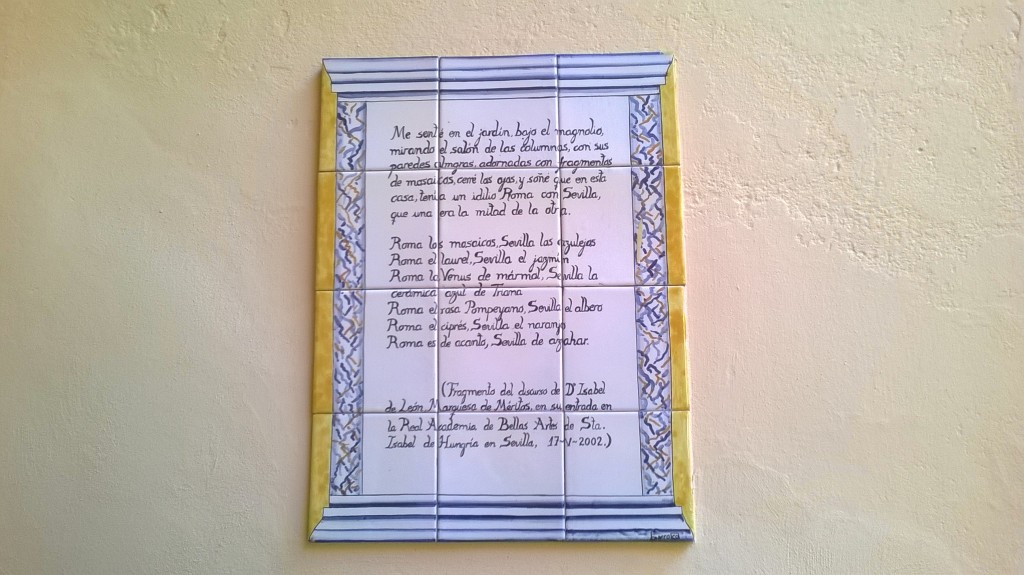 Me senté en el jardín, bajo el magnolio,
mirando el salón de las columnas, con sus
paredes almgras, adornadas con fragmentos
de mosaicos, cerré los ojos, y soñé que en esta
casa, tenía un idilio Roma con Sevilla,
que una era la mitad de la otra.
Roma los mosaicos, Sevilla los azulejos
Roma el laurel, Sevilla el jazmín
Roma la Venus de mármol, Sevilla la
cerámica azul de Triana
Roma el rosa Pompeyano, Sevilla el albero
Roma el ciprés, Sevilla el naranjo
Roma es de acanto, Sevilla de azahar.
(Fragmento del discurso de Dª Isabel
de León Marquesa de Méritos, en su entrada en
la Real Academia de Bellas Artes de Sta.
Isabel de Hungría en Sevilla, 17-V-2002.)